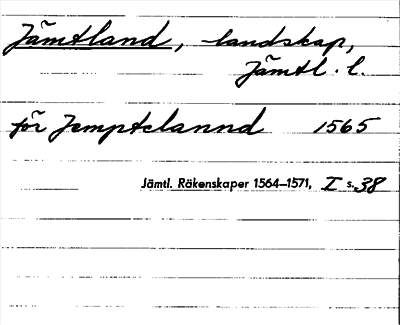 Jämtland, landskap,
Jämtl. l.
för Jemptelannd 1565
Jämtl. Räkenskaper 1564–1571, I s. 38